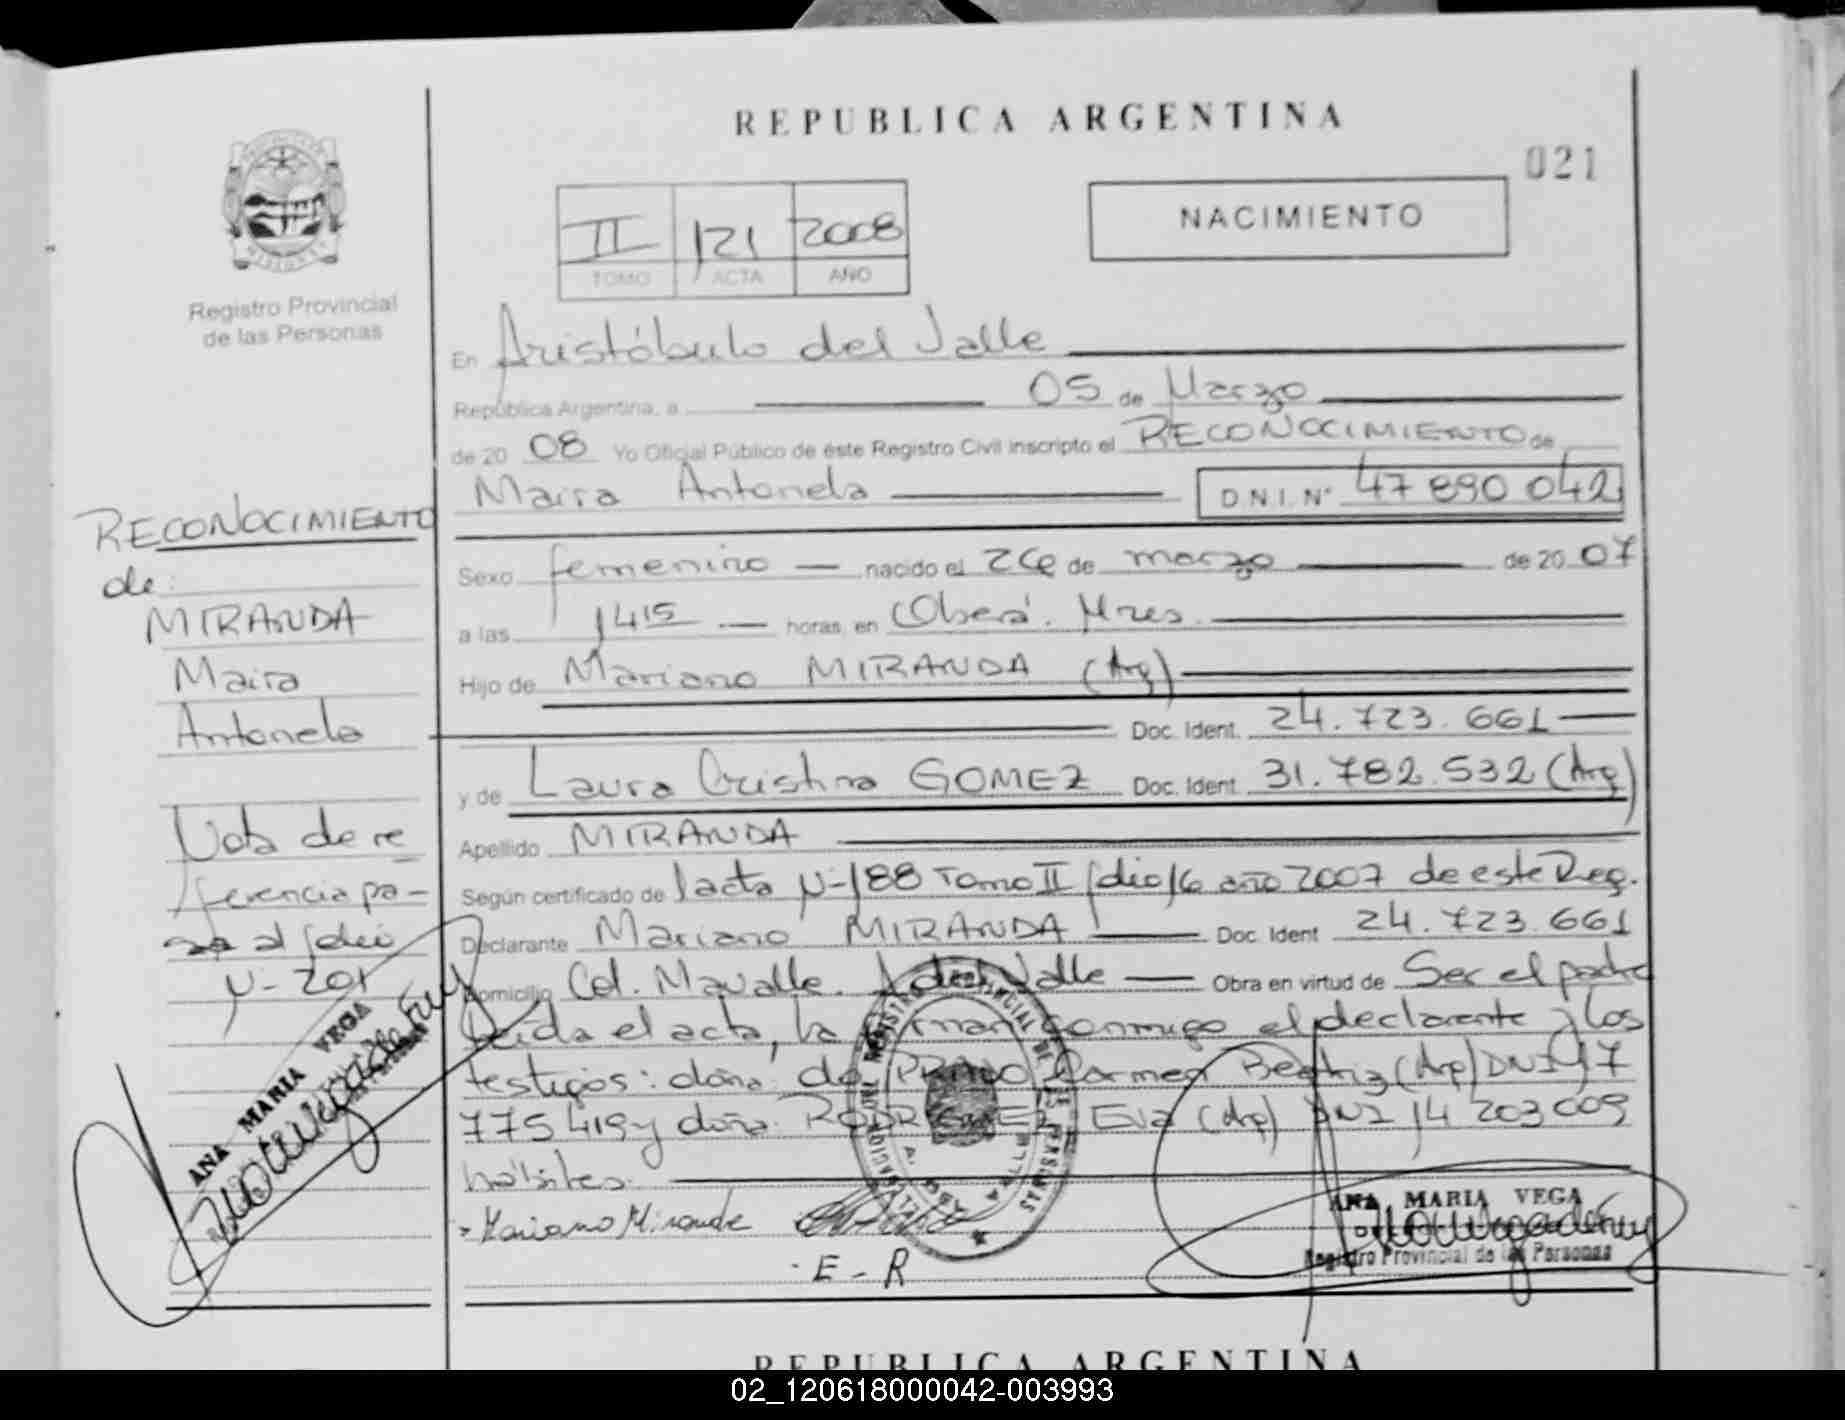 REPUBLICA ARGENTINA
021
NACIMIENTO
II 121 2008
TOMO ACTA AÑO
Registro Provincial
de las Personas
En Aristóbulo del Valle
República Argentina, a 05 de Marzo
de 20 08 Yo Oficial Público de éste Registro Civil inscripto el RECONOCIMIENTO de
Maira Antonela D.N.I. N° 47 890 042
Sexo femenino nacido el 26 de marzo de 20 07
a las 14 15 horas, en Oberá. Mnes.
Hijo de Mariano MIRANDA (Arg)
Doc. Ident. 24.723.661
y de Laura Cristina GOMEZ Doc. Ident. 31.782.532 (Arg)
Apellido MIRANDA
Según certificado de acta N-188 Tomo II folio 16 año 2007 de este Reg.
Declarante Mariano MIRANDA Doc. Ident 24.723.661
Domicilio Col. Mavalle. A. del Valle Obra en virtud de Ser el padre
Leida el acta, la firman conmigo el declarante y los
testigos: doña: do PRADO Carmen Beatriz (Arg) DNI 17
775 419 y doña: RODRIGUEZ Eva (Arg) DNI 14 203 009
hábiles.
Mariano Miranda
E-R
ANA MARIA VEGA
Registro Provincial de las Personas
RECONOCIMIENTO
de:
MIRANDA
Maira
Antonela
Nota de re
ferencia pa-
sa al folio
N- 201
ANA MARIA VEGA
REPUBLICA ARGENTINA
02_120618000042-003993